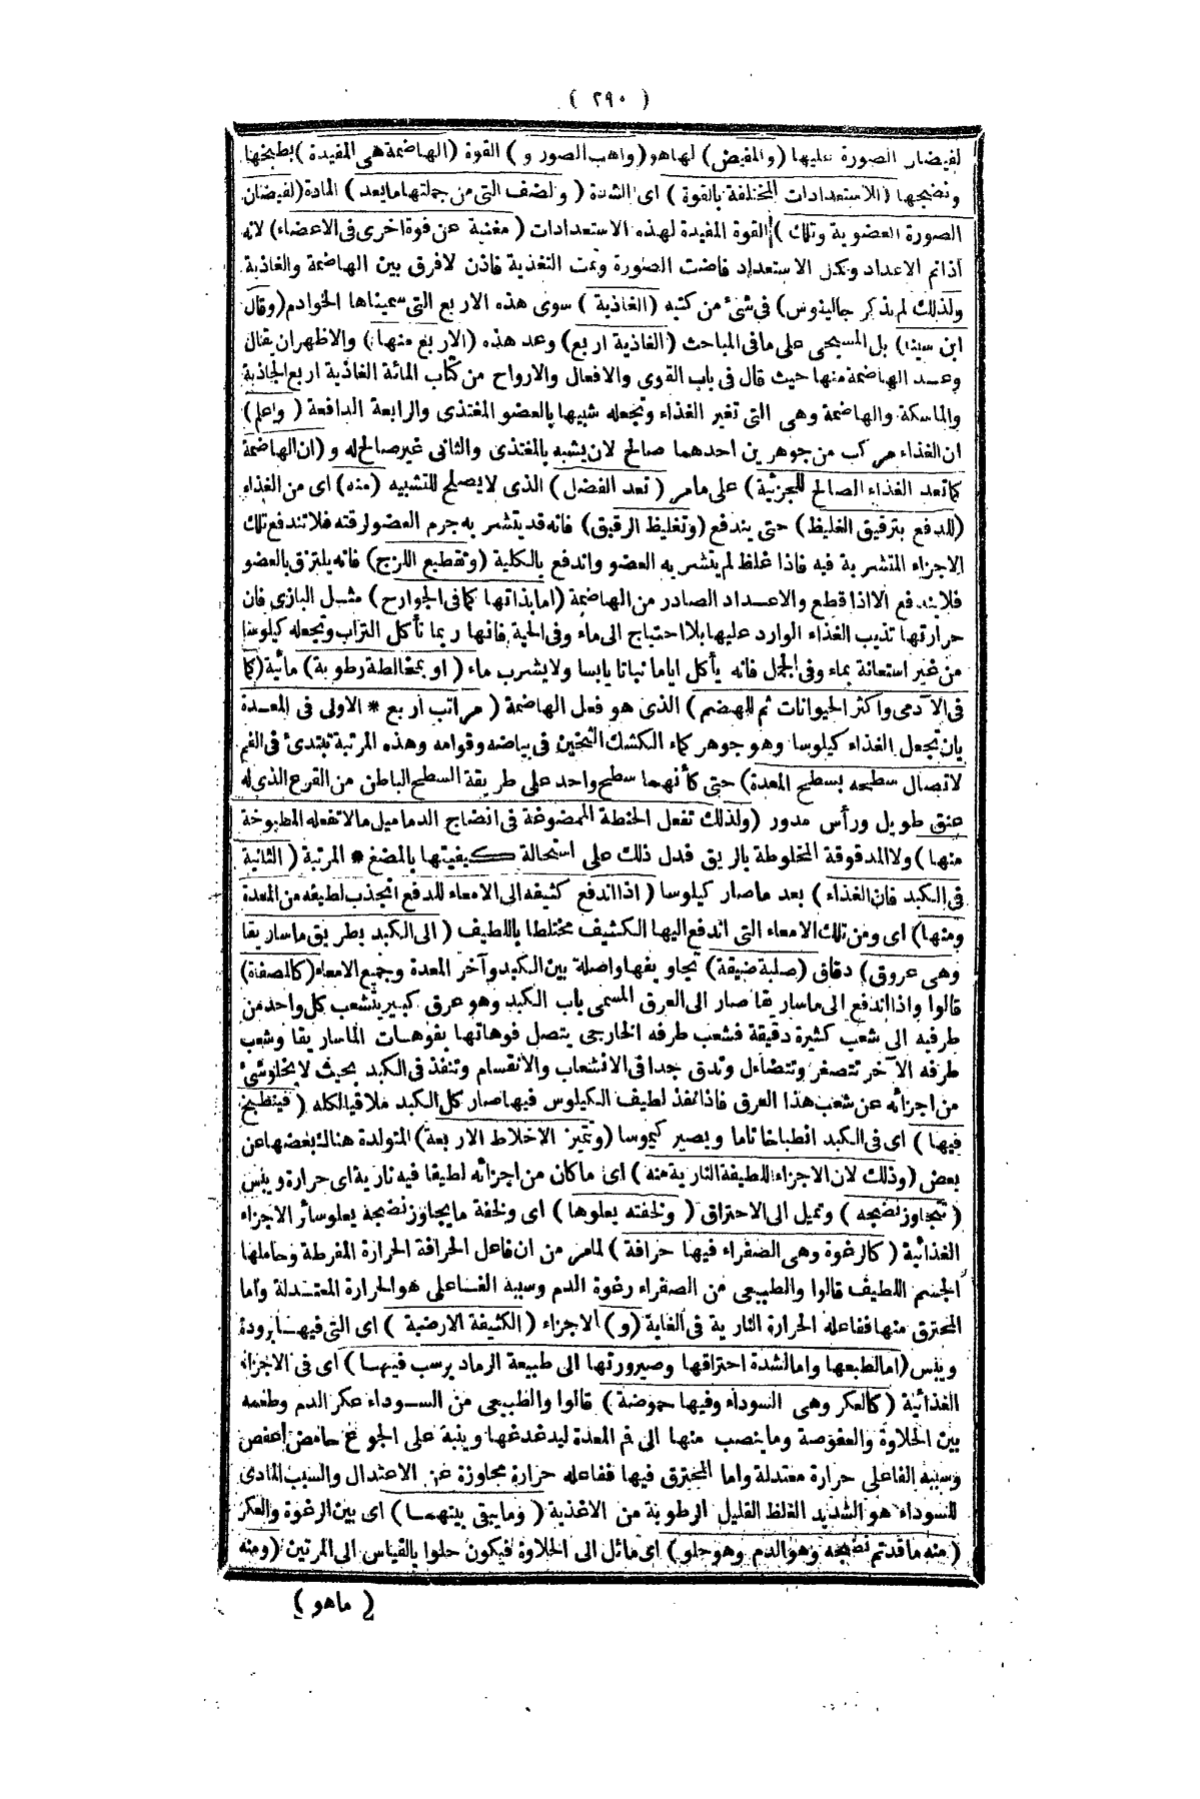 ( ٢٩٠ )
لفيضان الصورة عليها (والمفيض) لها هو (واهب الصور و) القوة (الهاضمة هى المفيدة) بطبخها
ونضجها (للاستعدادات المختلفة بالقوة) اى الشدة (والضعف التى من جملتها ما يعد) المادة (لفيضان
الصورة العضوية وتلك) القوة المفيدة لهذه الاستعدادات (مغنية عن قوة اخرى فى الاعضاء) لانه
اذا تم الاعداد وكمل الاستعداد فاضت الصورة وتمت التغذية فاذن لا فرق بين الهاضمة والغاذية
ولذلك لم يذكر جالينوس) فى شئ من كتبه (الغاذية) سوى هذه الاربع التى سميناها الخوادم (وقال
ابن سينا) بل المسيحى على ما فى المباحث (الغاذية اربع) وعد هذه (الاربع منها) والاظهر ان يقال
وعد الهاضمة منها حيث قال فى باب القوى والافعال والارواح من كتاب المائة الغاذية اربع الجاذبة
والماسكة والهاضمة وهى التى تغير الغذاء وتجعله شبيها بالعضو المغتذى والرابعة الدافعة (واعلم)
ان الغذاء مركب من جوهرين احدهما صالح لان يشبه بالمغتذى والثانى غير صالح له و (ان الهاضمة
كما تعد الغذاء الصالح للجزئية) على ما مر (تعد الفضل) الذى لا يصلح للتشبيه (منه) اى من الغذاء
(للدفع بترقيق الغليظ) حتى يندفع (وتغليظ الرقيق) فانه قد يتشربه جرم العضو لرقته فلا تندفع تلك
الاجزاء المتشربة فيه فاذا غلظ لم يتشربه العضو واندفع بالكلية (وتقطيع اللزج) فانه يلتزق بالعضو
فلا يندفع الا اذا قطع والاعداد الصادر من الهاضمة (اما بذاتها كما فى الجوارح) مثل البازى فان
حرارتها تذيب الغذاء الوارد عليها بلا احتياج الى ماء وفى الحية فانها ربما تأكل التراب وتجعله كيلوسا
من غير استعانة بماء وفى الجمل فانه يأكل اياما نباتا يابسا ولا يشرب ماء (او بمخالطة رطوبة) مائية (كما
فى الآدمى واكثر الحيوانات ثم للهضم) الذى هو فعل الهاضمة (مراتب اربع * الاولى فى المعدة
بان تجعل الغذاء كيلوسا وهو جوهر كماء الكشك الثخين فى بياضه وقوامه وهذه المرتبة تبتدئ فى الفم
لاتصال سطحه بسطح المعدة) حتى كأنهما سطح واحد على طريقة السطح الباطن من القرع الذى له
عنق طويل ورأس مدور (ولذلك تفعل الحنطة الممضوغة فى انضاج الدماميل ما لا تفعله المطبوخة
منها) ولا المدقوقة المخلوطة بالريق فدل ذلك على استحالة كيفيتها بالمضغ * المرتبة (الثانية
فى الكبد فان الغذاء) بعد ما صار كيلوسا (اذا اندفع كثيفه الى الامعاء للدفع انجذب لطيفه من المعدة
ومنها) اى ومن تلك الامعاء التى اندفع اليها الكثيف مختلطا باللطيف (الى الكبد بطريق ماساريقا
وهى عروق) دقاق (صلبة ضيقة) تجاويفها واصلة بين الكبد وآخر المعدة وجميع الامعاء (كالمصفاة)
قالوا واذا اندفع الى ماساريقا صار الى العرق المسمى باب الكبد وهو عرق كبير يتشعب كل واحد من
طرفيه الى شعب كثيرة دقيقة فشعب طرفه الخارجى يتصل فوهاتها بفوهات الماساريقا وشعب
طرفه الآخر تتصغر وتتضاءل وتدق جدا فى الانشعاب والانقسام وتنفذ فى الكبد بحيث لا يخلو شئ
من اجزائه عن شعب هذا العرق فاذا نفذ لطيف الكيلوس فيها صار كل الكبد ملاقيا لكله (فينطبخ
فيها) اى فى الكبد انطباخا تاما ويصير كيموسا (وتتميز الاخلاط الاربعة) المتولدة هنالك بعضها عن
بعض (وذلك لان الاجزاء اللطيفة النارية منه) اى ما كان من اجزائه لطيفا فيه نارية اى حرارة ويبس
(تتجاوز نضجه) وتميل الى الاحتراق (ولخفته يعلوها) اى ولخفة ما يجاوز نضجه يعلو سائر الاجزاء
الغذائية (كالرغوة وهى الصفراء فيها حرافة) لما مر من ان فاعل الحرافة الحرارة المفرطة وحاملها
الجسم اللطيف قالوا والطبيعى من الصفراء رغوة الدم وسببه الفاعلى هو الحرارة المعتدلة واما
المحترق منها ففاعله الحرارة النارية فى الغاية (و) الاجزاء (الكثيفة الارضية) اى التى فيها برودة
ويبس (اما لطبعها واما لشدة احتراقها وصيرورتها الى طبيعة الرماد يرسب فيها) اى فى الاجزاء
الغذائية (كالعكر وهى السوداء وفيها حموضة) قالوا والطبيعى من السوداء عكر الدم وطعمه
بين الحلاوة والعفوصة وما ينصب منها الى فم المعدة ليدغدغها وينبه على الجوع حامض اعفص
وسببه الفاعلى حرارة معتدلة واما المحترق فيها ففاعله حرارة مجاوزة عن الاعتدال والسبب المادى
للسوداء هو الشديد الغلظ القليل الرطوبة من الاغذية (وما يبقى بينهما) اى بين الرغوة والعكر
(منه ما قد تم نضجه وهو الدم وهو حلو) اى مائل الى الحلاوة فيكون حلوا بالقياس الى المرتين (ومنه
(ما هو)